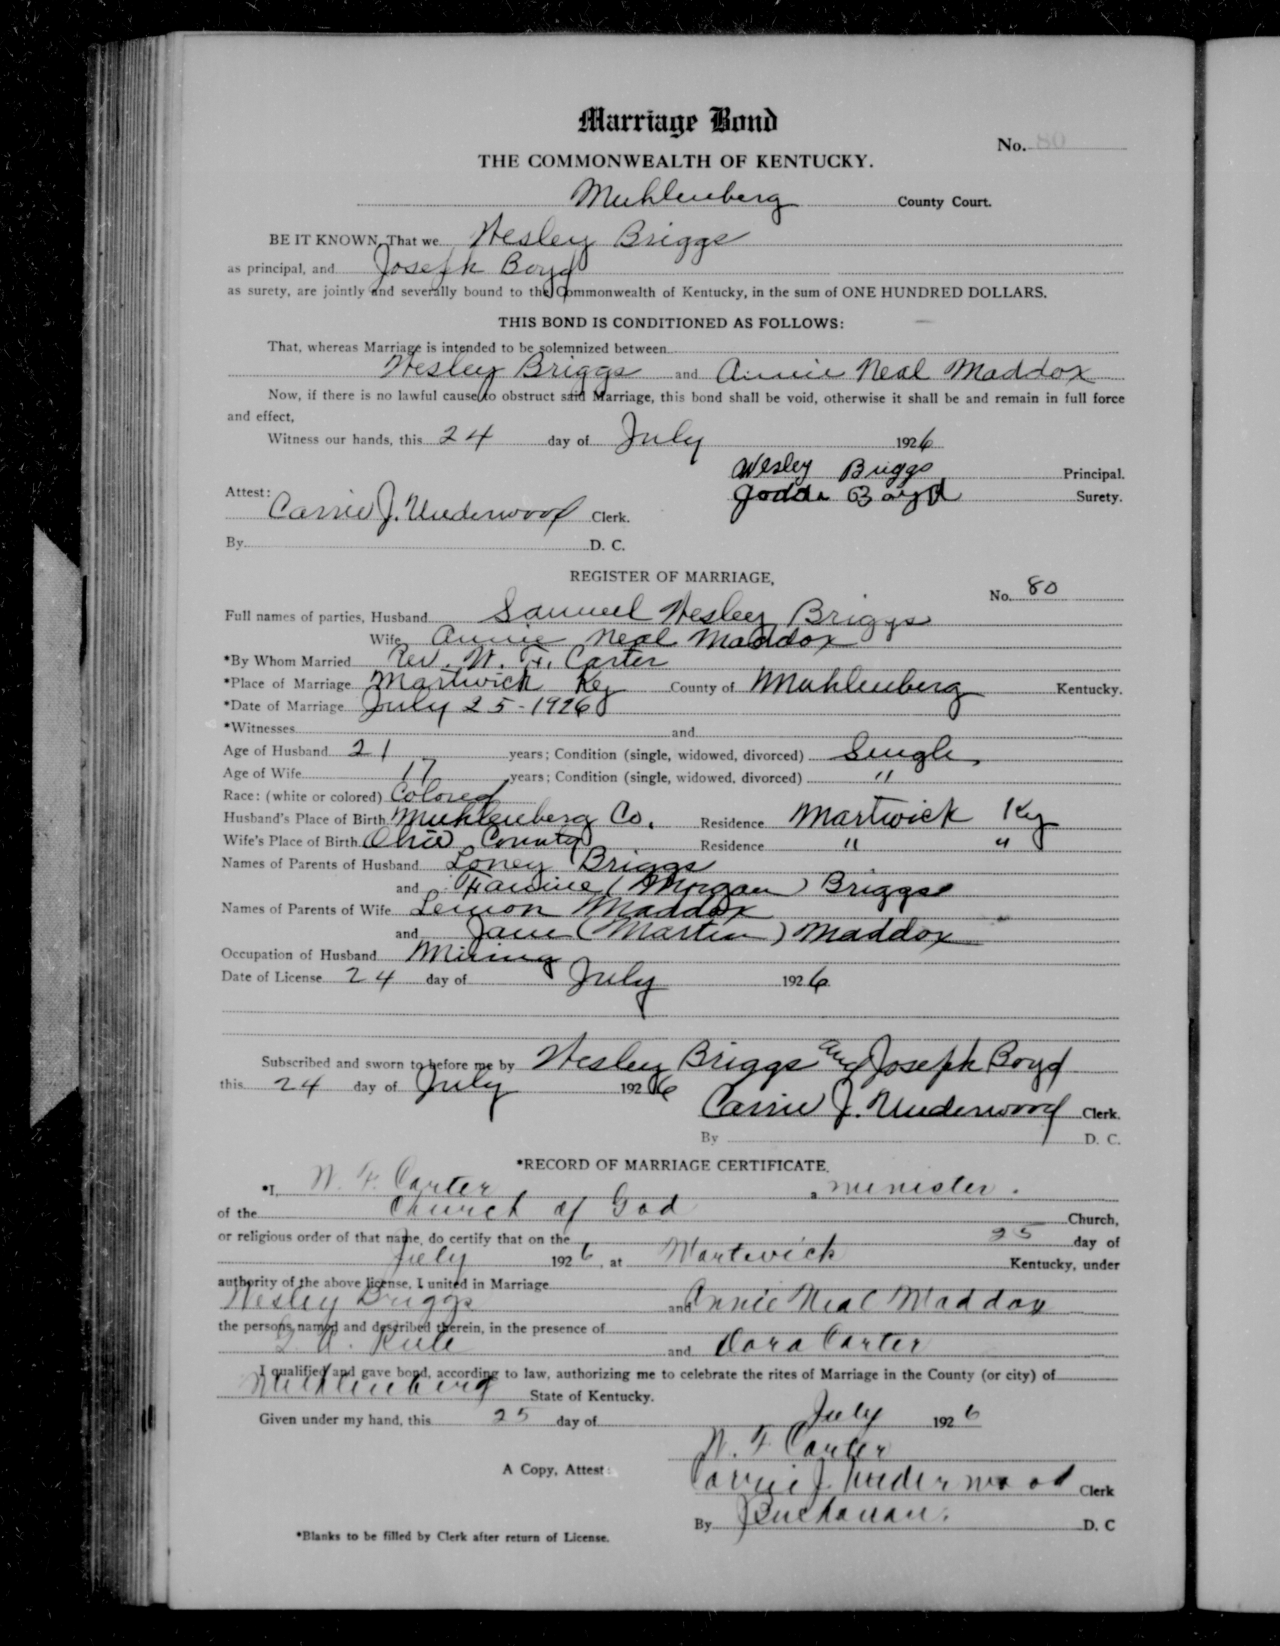 Marriage Bond
No. 80
THE COMMONWEALTH OF KENTUCKY.
Muhlenberg County Court.
BE IT KNOWN, That we Wesley Briggs
as principal, and Joseph Boyd
as surety, are jointly and severally bound to the Commonwealth of Kentucky, in the sum of ONE HUNDRED DOLLARS.
THIS BOND IS CONDITIONED AS FOLLOWS:
That, whereas Marriage is intended to be solemnized between
Wesley Briggs and Annie Neal Maddox
Now, if there is no lawful cause to obstruct said Marriage, this bond shall be void, otherwise it shall be and remain in full force
and effect,
Witness our hands, this 24 day of July 1926
Wesley Briggs Principal.
Boyd Surety.
Attest: Carrie J. Underwood Clerk.
By D. C.
REGISTER OF MARRIAGE,
No. 80
Full names of parties, Husband Samuel Wesley Briggs
Wife Annie Neal Maddox
*By Whom Married Rev. W. F. Carter
*Place of Marriage Martwick Ky County of Muhlenberg Kentucky.
*Date of Marriage July 25-1926
*Witnesses and
Age of Husband 21 years; Condition (single, widowed, divorced) Single,
Age of Wife 17 years; Condition (single, widowed, divorced) "
Race: (white or colored) Colored
Husband's Place of Birth Muhlenberg Co. Residence Martwick Ky
Wife's Place of Birth Ohio County Residence " "
Names of Parents of Husband Loney Briggs
and Fannie (Morgan) Briggs
Names of Parents of Wife Lemon Maddox
and Jane (Martin) Maddox
Occupation of Husband Mining
Date of License 24 day of July 1926
Subscribed and sworn to before me by Wesley Briggs and Joseph Boyd
this 24 day of July 1926
Carrie J. Underwood Clerk.
By D. C.
*RECORD OF MARRIAGE CERTIFICATE.
*I, W. F. Carter, a minister.
of the Church of God Church,
or religious order of that name, do certify that on the 25 day of
July 1926, at Martwick Kentucky, under
authority of the above license, I united in Marriage
Wesley Briggs and Annie Neal Maddox
the persons named and described therein, in the presence of
Rule and Dora Carter
I qualified and gave bond, according to law, authorizing me to celebrate the rites of Marriage in the County (or city) of
Muhlenberg State of Kentucky.
Given under my hand, this 25 day of July 1926
W. F. Carter
A Copy, Attest: Carrie J. Underwood Clerk
By J Buchanan. D. C
*Blanks to be filled by Clerk after return of License.